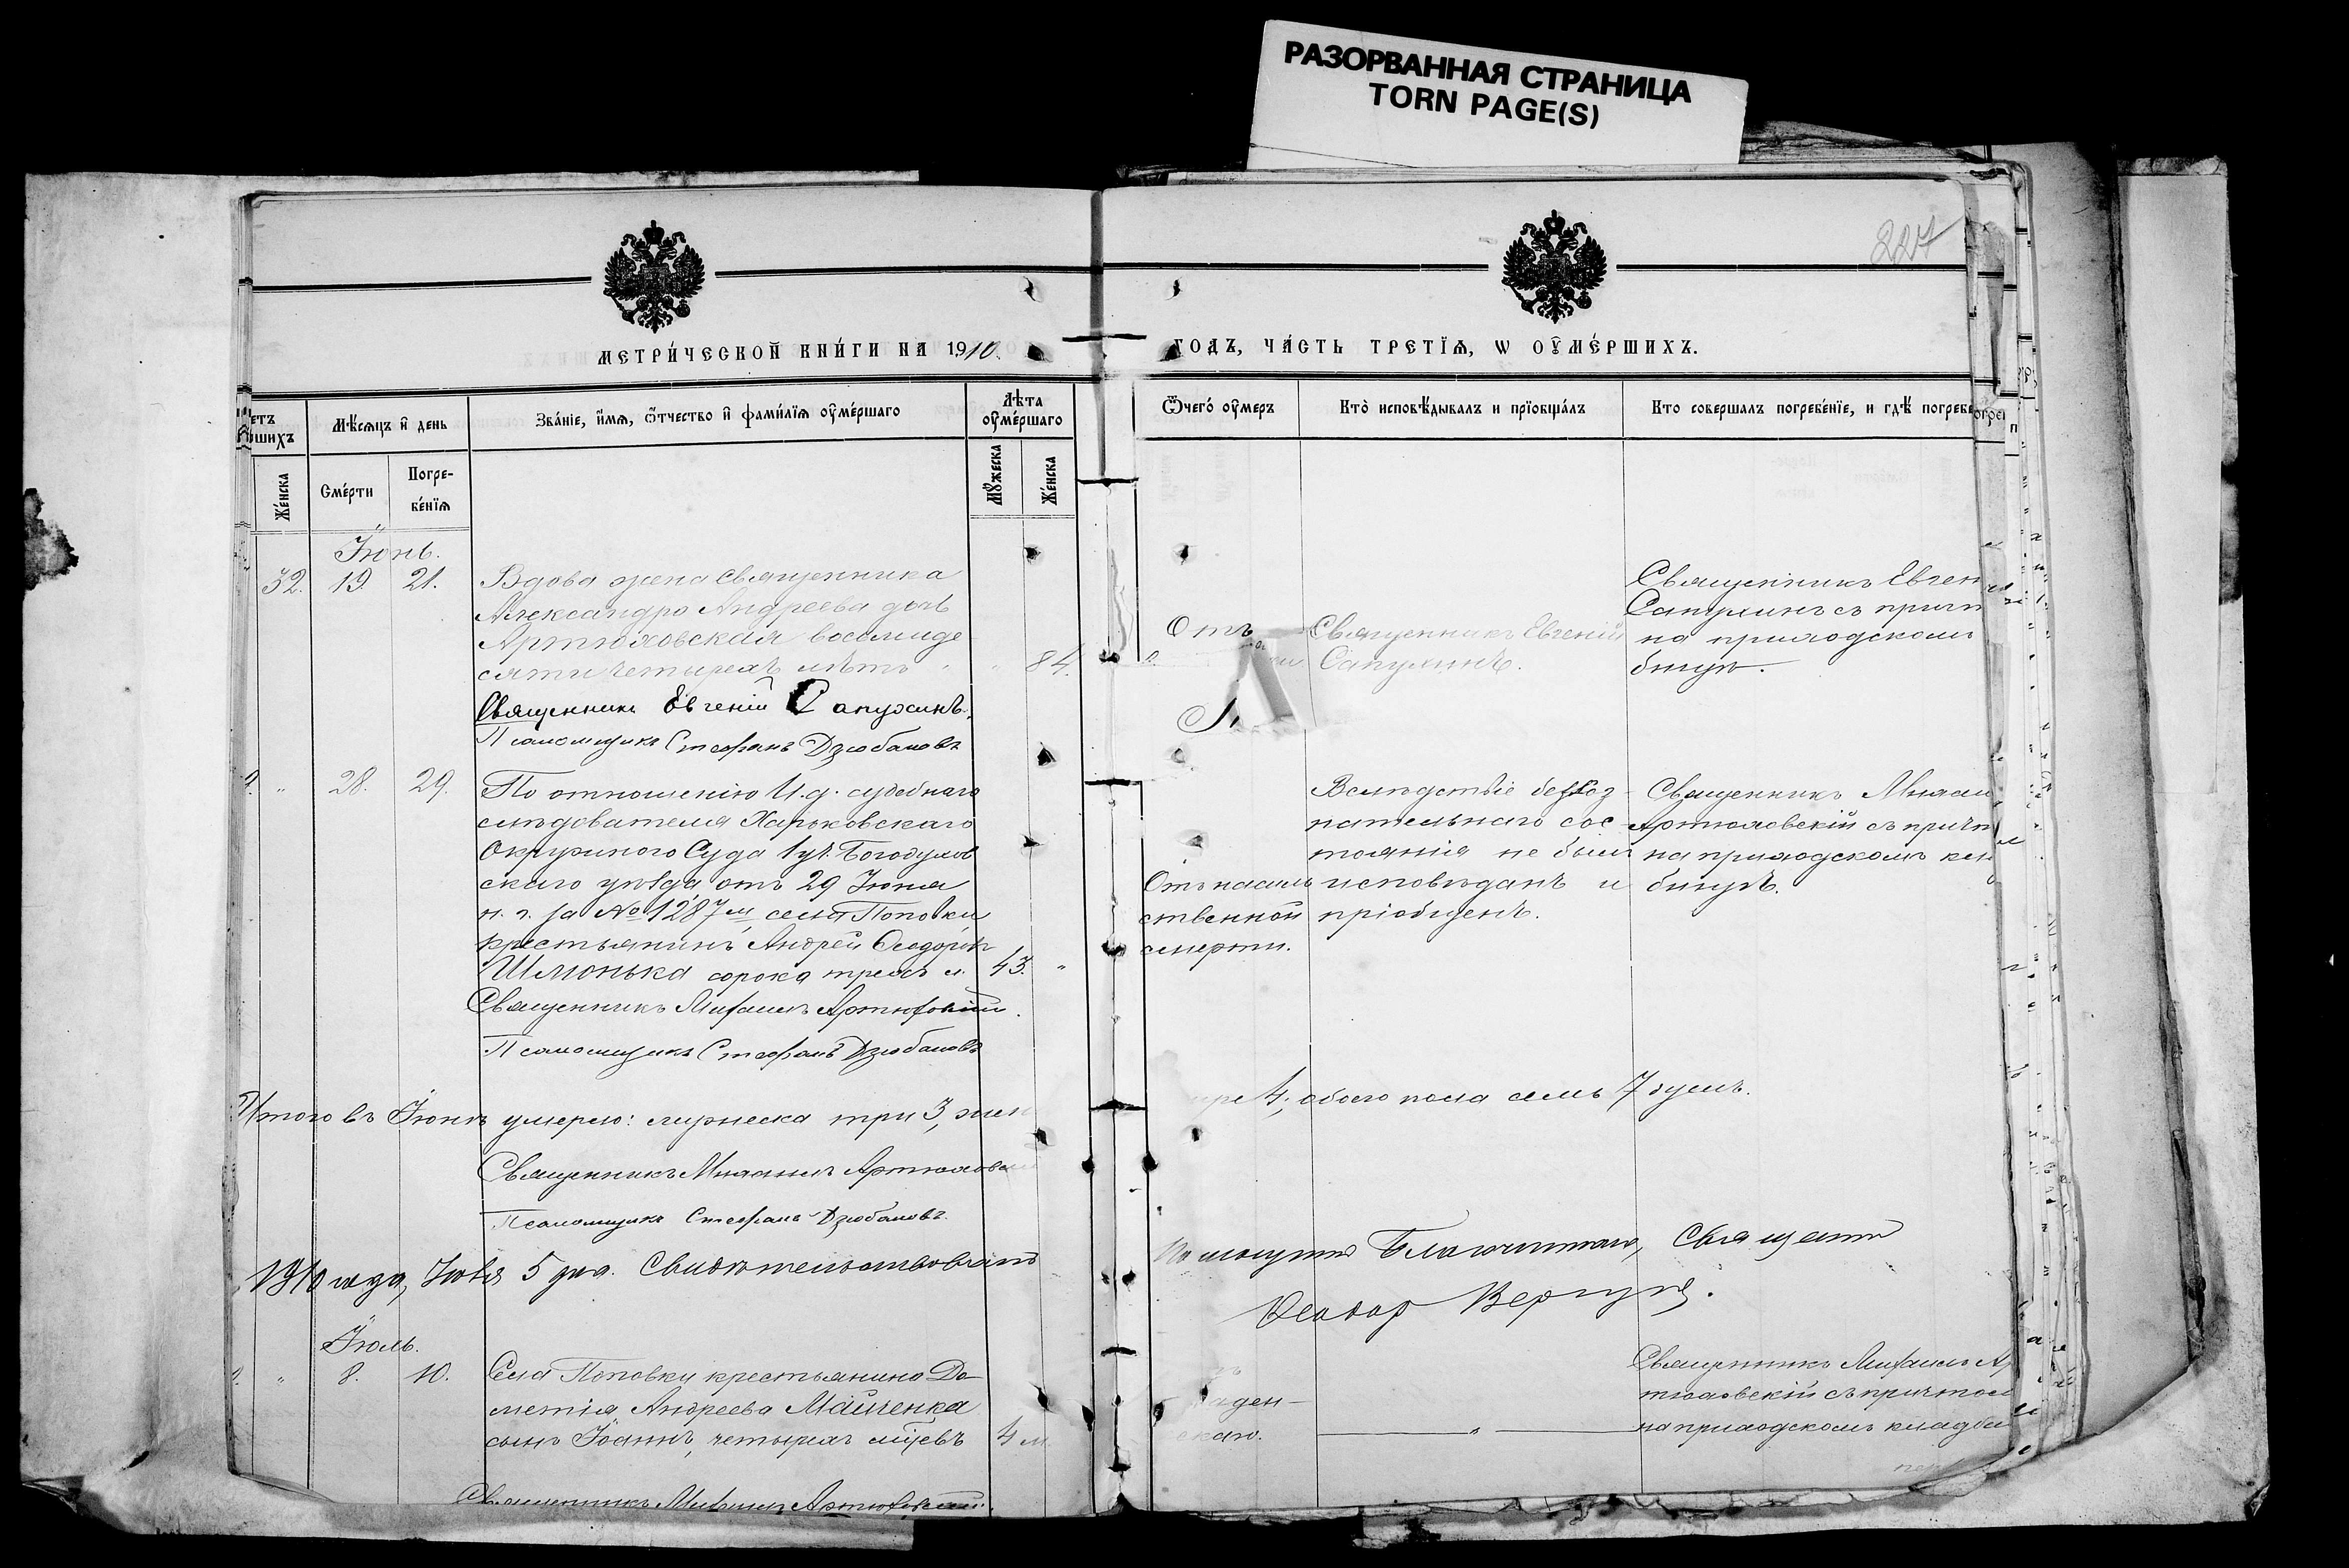 РАЗОРВАННАЯ СТРАНИЦА
TORN PAGE(S)
227
МЕТРИ́ЧЕСКОЙ КНИ́ГИ НА 1910.
ГОДЪ, ЧА́СТЬ ТРЕТЇѦ, Ѡ ОУ҆МЕ́РШИХЪ.
Мѣсяцъ и день
Зва́нїе, и҆́мѧ, ѻ҆́тчество и҆ фами́лїѧ оу҆ме́ршагѡ
Лѣта
оу҆ме́ршаго
Ѿчегѡ̀ оу҆меръ
Кто̀ исповѣ́дывалъ и прїѡбща́лъ
Кто совершалъ погребе́нїе, и гдѣ̀ погребе
Же́нска
Сме́рти
Погре-
бе́нїѧ
Мꙋ́жеска
Же́нска
Іюнь.
32. 19. 21.
Вдова жена священника
Александра Андреева дочь
Артюховская восемьде
сяти четырехъ лѣтъ " 84.
Священникъ Евгеній Сапухинъ.
Псаломщикъ Стефанъ Дзюбановъ
Отъ
Священникъ Евгеній
Сапухинъ.
Священникъ Евген
Сапухинъ съ прич
на приходскомъ
бищѣ.
" 28. 29.
По отношенію И. д. судебнаго
слѣдователя Харьковскаго
Окружного Суда 1 уч. Богодухов
скаго уѣзда отъ 29 Іюня
н. г. за № 1287 м, села Поповки
крестьянинъ Андрей Ѳеодоров
Шлюнька сорока трехъ л. 43. "
Священникъ Михаилъ Артюховскій.
Псаломщикъ Стефанъ Дзюбановъ
Отъ насиль
ственной
смерти.
Вслѣдствіе безсоз-
нательнаго сос-
тоянія не былъ
исповѣданъ и
пріобщенъ.
Священникъ Михаи
Артюховскій съ причт
на приходскомъ кла
бищѣ.
Итого въ Іюнѣ умерло: мужеска три 3, жен
ре 4, обоего пола семь 7 душъ.
Священникъ Михаилъ Артюховс
Псаломщикъ Стефанъ Дзюбановъ.
1910 года, Іюля 5 дня. Свидѣтельствовалъ
Благочиннаго, Священни
Ѳеодор Вергун.
Іюль.
" 8. 10.
Села Поповки крестьянина До-
метія Андреева Майченка
сынъ Іоаннъ, четырехъ мѣсяцевъ 4 м
аден-
скаго.
"
Священникъ Михаилъ Ар
тюховскій съ причтом
на приходскомъ кладби
Священникъ Михаилъ Артюховскій.